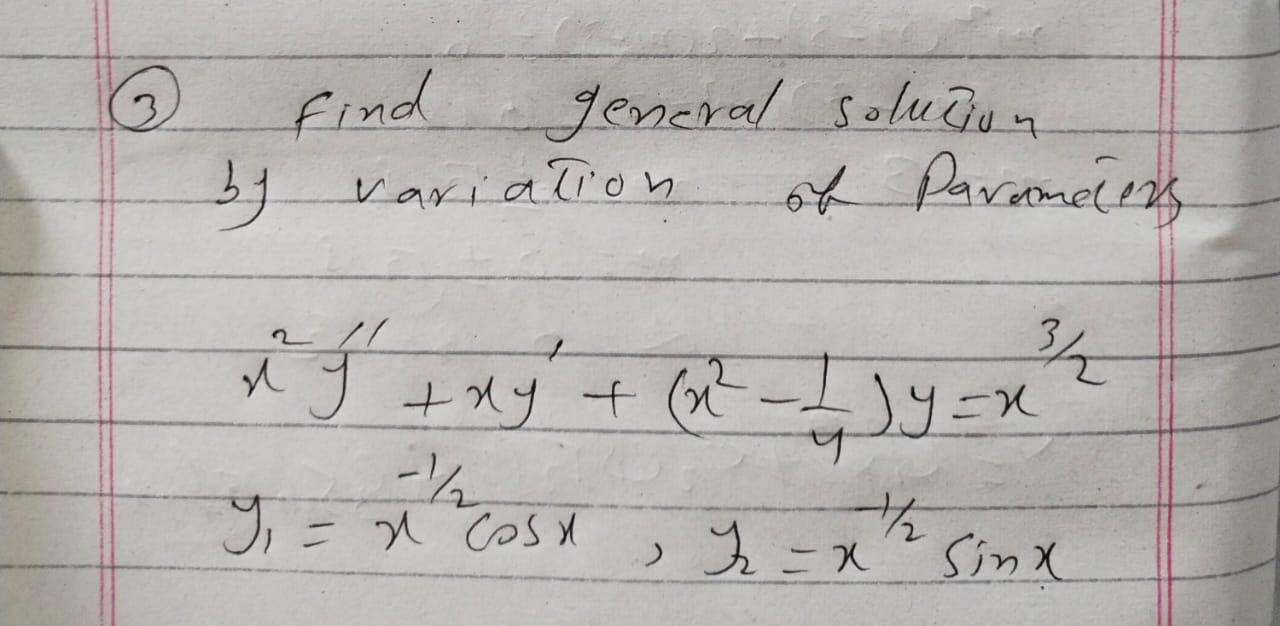 ③ find general solution
by variation of Parameters
x²y'' + xy' + (x² - 1/4)y = x^3/2
y₁ = x^-1/2 cosx , y₂ = x^-1/2 sinx